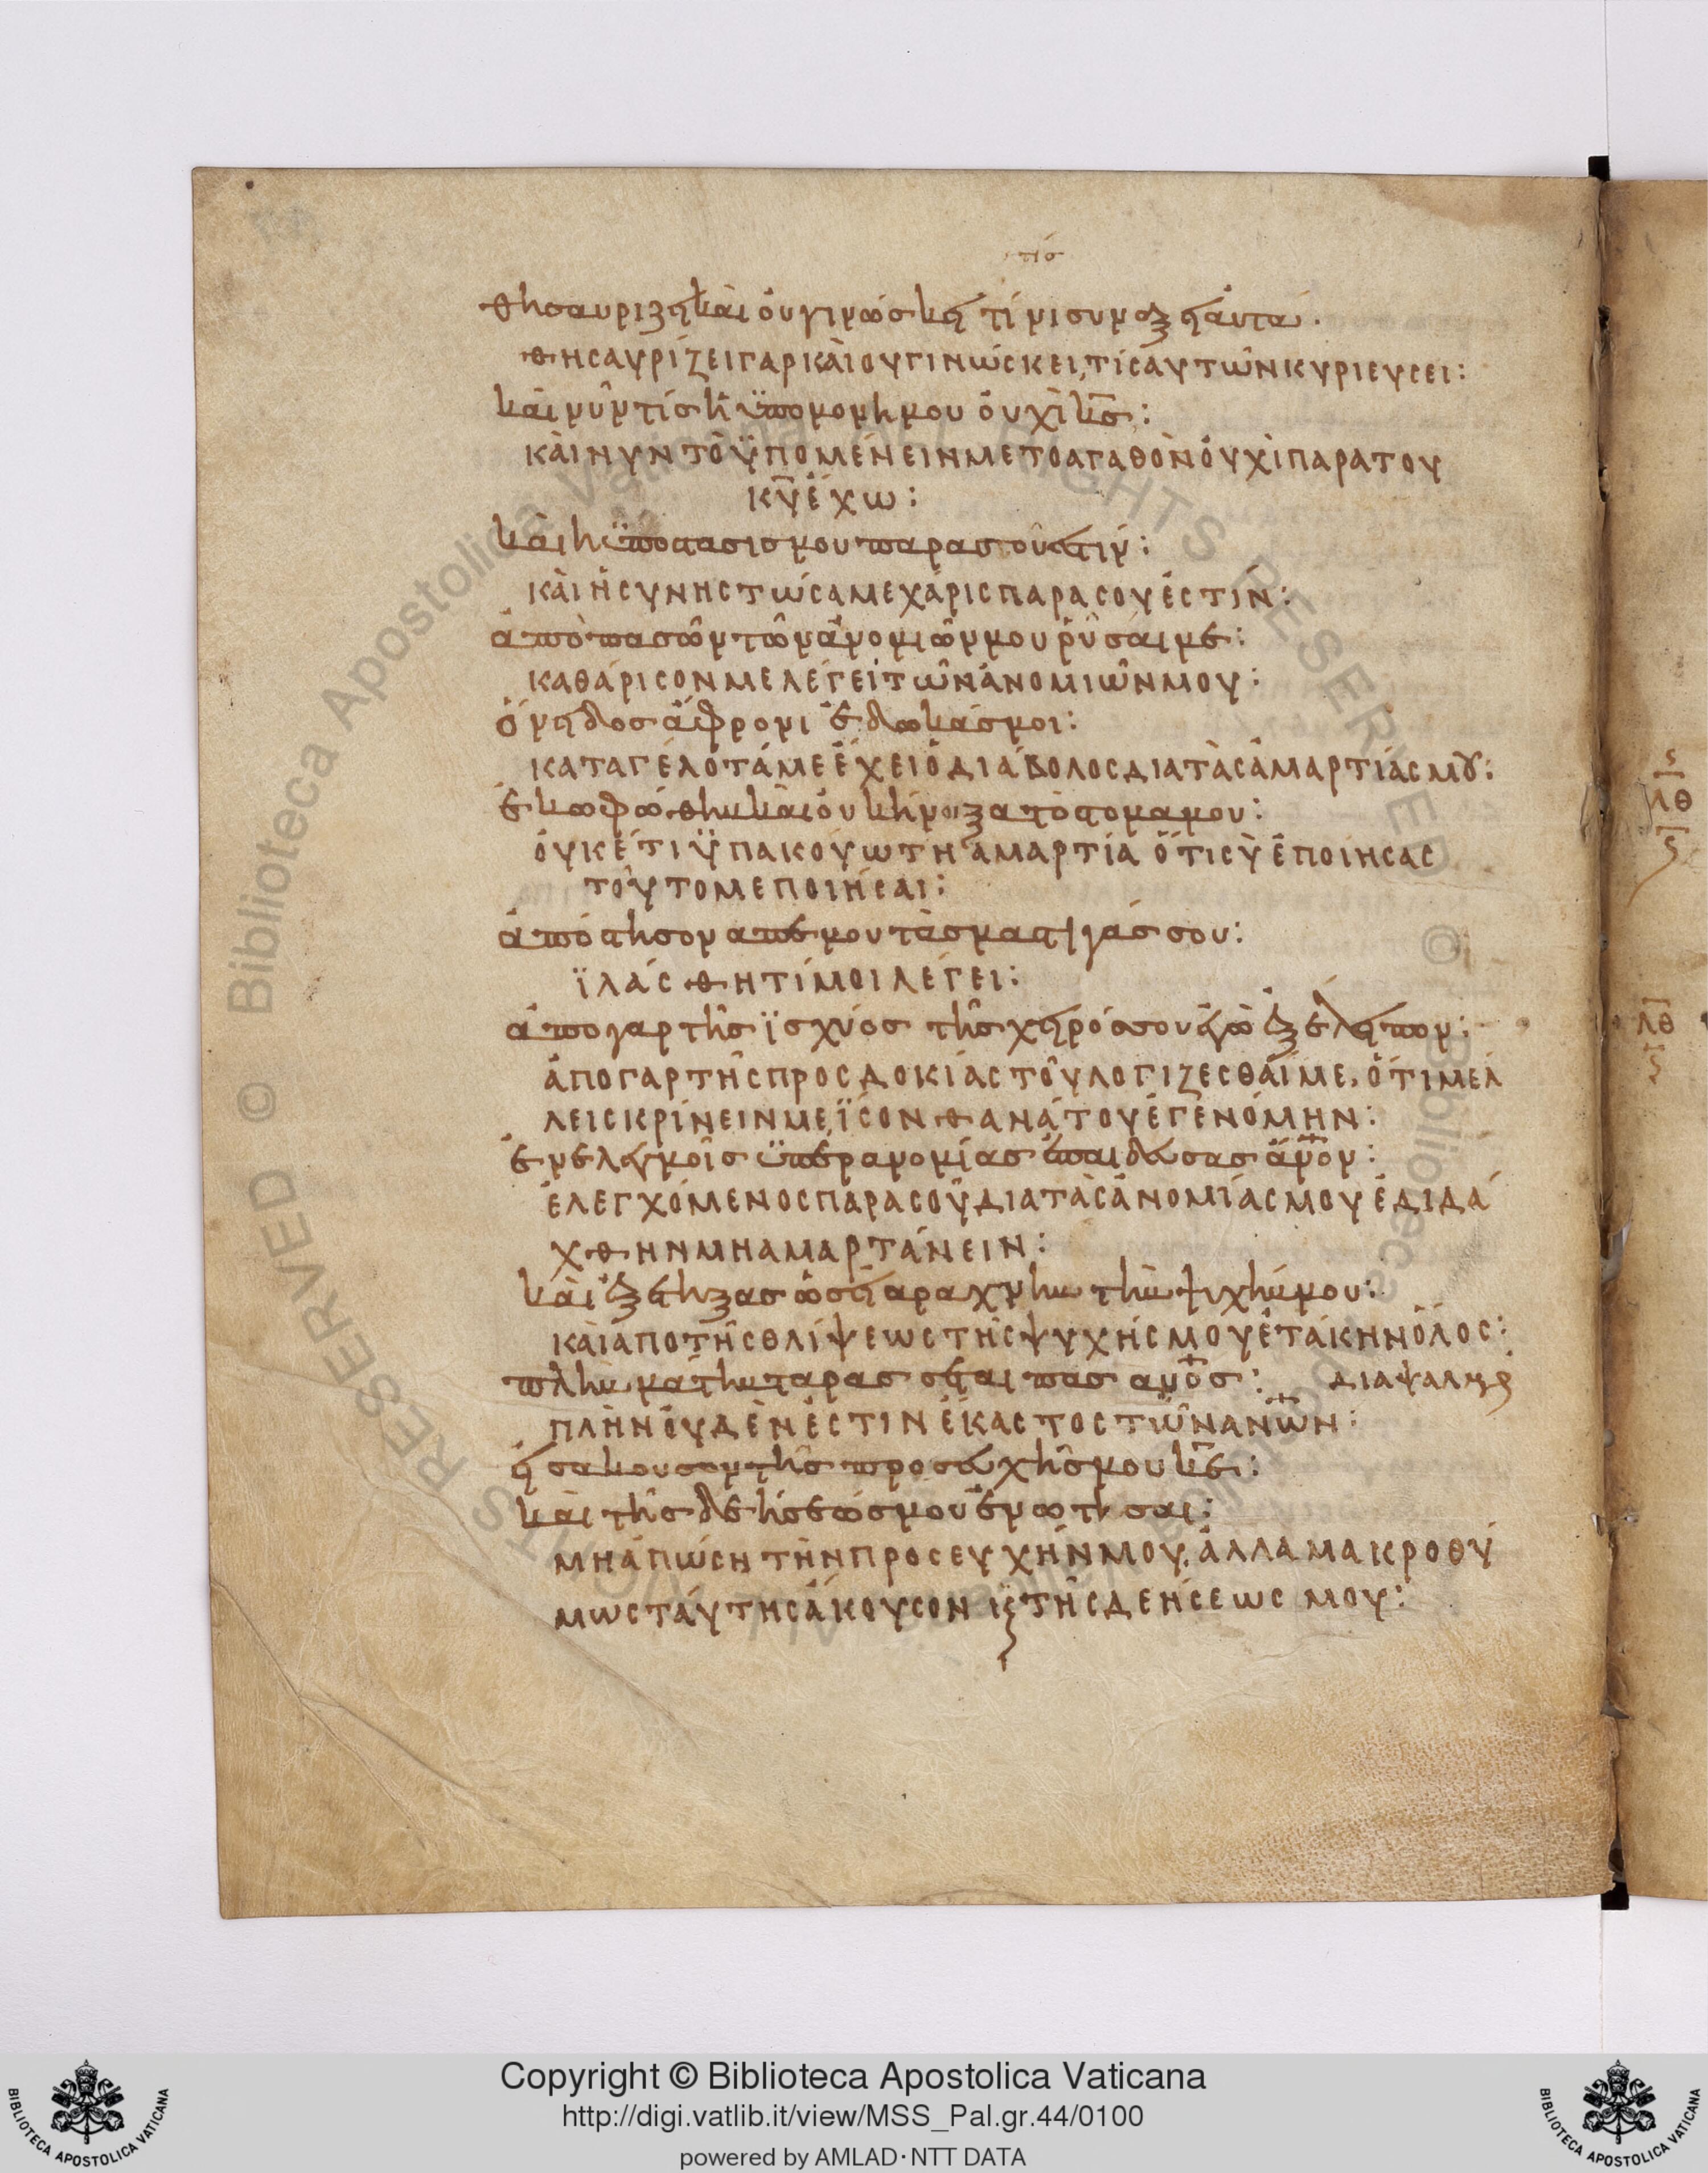 θησαυρίζει καὶ οὐ γινώσκει τίνι συνάξει αὐτά.
ΘΗCΑΥΡΊΖΕΙ ΓΑΡ ΚΑῚ ΟΥ ΓΙΝΏCΚΕΙ, ΤΊC ΑΥΤΩ͂Ν ΚΥΡΙΕΥCΕΙ:
καὶ νῦν τίς ἡ ὑπομονή μου οὐχὶ κ̅ς̅:
ΚΑῚ ΝΥΝ ΤῸ ΫΠΟΜΈΝΕΙΝ ΜΕ ΤΟ ΑΓΑΘῸΝ ΟΥΧῚ ΠΑΡΑ ΤΟΥ
Κ̅Υ̅ ΈΧΩ:
καὶ ἡ ὑπόστασίς μου παρὰ σοῦ ἐστιν:
ΚΑῚ Ἡ CΥΝΗCΤΏCΑ ΜΕ ΧΆΡΙC ΠΑΡΑ CΟΥ ΈCΤΙΝ:
ἀπὸ πασῶν τῶν ἀνομιῶν μου ῥῦσαί με:
ΚΑΘΆΡΙCΟΝ ΜΕ ΛΈΓΕΙ ΤΩ͂Ν ΑΝΟΜΙΩ͂Ν ΜΟΥ:
ὄνειδος ἄφρονι ἔδωκάς μοι:
ΚΑΤΑΓΈΛΟΤΆ ΜΕ ΈΧΕΙ Ὁ ΔΙΆΒΟΛΟC ΔΙΑ ΤᾺC ἉΜΑΡΤΊΑC ΜȢ:
ἐκωφώθην καὶ οὐκ ἤνοιξα τὸ στόμα μου:
ΟΥΚΈΤΙ ΫΠΑΚΟΎΩ ΤΗ ἉΜΑΡΤΊΑ ὍΤΙ CῪ ἘΠΟΙΗCΑC
ΤΟΥΤΟ ΜΕ ΠΟΙΗ͂CΑΙ:
ἀπόστησον ἀπ' ἐμοῦ τὰς μάστιγάς σου:
ΪΛΆCΘΗΤΊ ΜΟΙ ΛΈΓΕΙ:
ἀπὸ γὰρ τῆς ἰσχύος τῆς χειρός σου ἐγὼ ἐξέλειπον:
ἈΠΟ ΓΑΡ ΤΗ͂C ΠΡΟCΔΟΚΊΑC ΤΟΥ͂ ΛΟΓΙΖΕCΘΑΊ ΜΕ, ὍΤΙ ΜΕΛ
ΛΕΙC ΚΡΊΝΕΙΝ ΜΕ, ΪCΟΝ ΘΑΝΆΤΟΥ ἘΓΕΝΌΜΗΝ:
ἐν ἐλεγμοῖς ὑπὲρ ἀνομίας ἐπαίδευσας ἄν̅ο̅ν:
ἘΛΕΓΧΌΜΕΝΟC ΠΑΡΑ CΟΥ͂ ΔΙΑ ΤᾺC ἈΝΟΜΊΑC ΜΟΥ ἘΔΙΔΆ
ΧΘΗΝ ΜΗ ΑΜΑΡΤΆΝΕΙΝ:
καὶ ἐξέτηξας ὡσεὶ ἀράχνην τὴν ψυχήν μου:
ΚΑῚ ἈΠΟ ΤΗ͂C ΘΛΊΨΕΩC ΤΗ͂C ΨΥΧΗ͂C ΜΟΥ ἘΤΆΚΗΝ ὍΛΟC:
πλὴν μάτην ταράσσεται πᾶς ἀν̅ο̅ς: ΔΙΑΨΑΛΜΑ
ΠΛῊΝ ΟΥΔΈΝ ἘCΤΙΝ ἝΚΑCΤΟC ΤΩ͂Ν ΑΝ̅Ω̅Ν:
εἰσάκουσον τῆς προσευχῆς μου κ̅ε̅:
καὶ τῆς δεήσεώς μου ἐνώτισαι:
ΜΗ ἈΠΏCΗ ΤῊΝ ΠΡΟCΕΥΧΉΝ ΜΟΥ, ἈΛΛΑ ΜΑΚΡΟΘΥ
ΜΩC ΤΑΎΤΗC ἌΚΟΥCΟΝ Κ̀ ΤΗ͂C ΔΕΗCΕΩC ΜΟΥ:
Copyright © Biblioteca Apostolica Vaticana
http://digi.vatlib.it/view/MSS_Pal.gr.44/0100
powered by AMLAD·NTT DATA
BIBLIOTECA APOSTOLICA VATICANA
BIBLIOTECA APOSTOLICA VATICANA